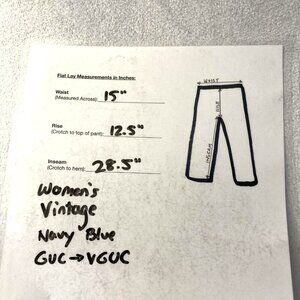 Flat Lay Measurements in Inches:
Waist
(Measured Across) 15"
Rise
(Crotch to top of pant) 12.5"
Inseam
(Crotch to hem) 28.5"
Women's
Vintage
Navy Blue
GUC → VGUC
WAIST
RISE
INSEAM